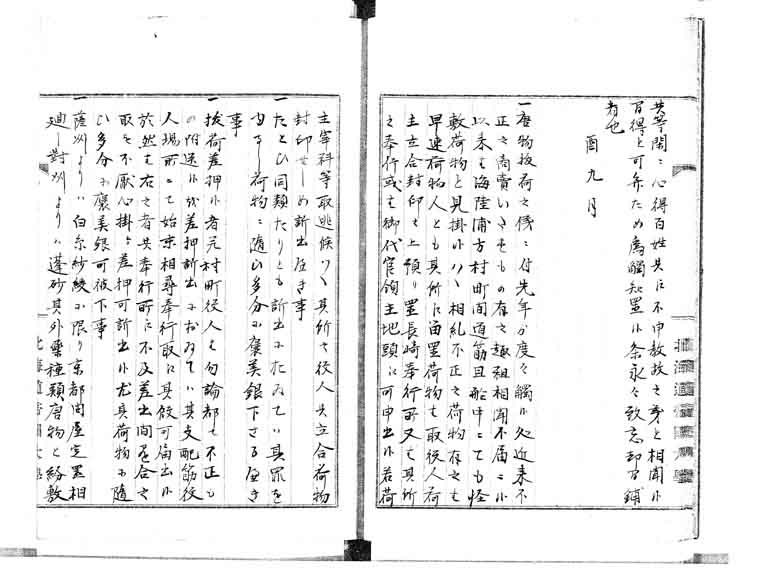 其等閑ニ心得百姓共ニ不申教故之事と相聞候
百得と可弁ため為觸知置候条永々致忘却間鋪
者也
酉九月
一唐物抜荷之儀ニ付先年より度々觸候処近来不
正之商賣いたすもの有之趣粗相聞不届ニ候
以来は海陸浦方村町間道筋且船中ニても怪
敷荷物と見掛候ハヽ相糺不正之荷物存之は
早速荷物人とも其所ニ留置荷物は取役人荷
主立合封印之上預り置長崎奉行所又は其所
之奉行或は御代官領主地頭ニ可申出候若荷
主宰料等取逃候ハヽ其所之役人共立合荷物
封印せしめ訴出へき事
一たとひ同類たりとも訴出におゐてハ其罪を
ゆるし荷物ニ随ひ多分の褒美銀下さるへき
事
一抜荷差押候者元村町役人は勿論都て不正も
の附送候を差押訴出におゐてハ其支配筋役
人場所ニて始末相尋奉行取ニ其段可届出候
於然は右之者共奉行所ニ不及差出間屋合之
取を不厭心掛ケ差押可訴出候尤其荷物に随
ひ多分の褒美銀可被下事
一薩州よりハ白糸紗綾に限り京都問屋定置相
廻し對州よりハ蓬砂其外藥種類唐物と紛敷